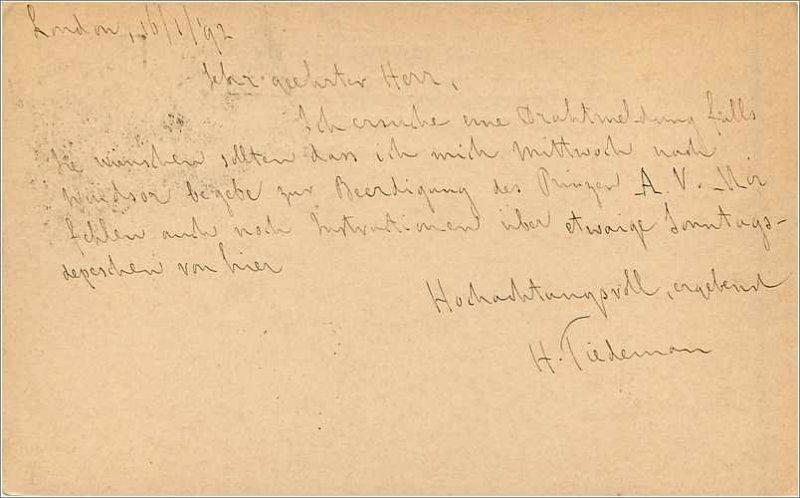 London, 16/1/'92
Sehr geehrter Herr,
Ich ersuche eine Drahtmeldung falls
Sie wünschen sollten dass ich mich Mittwoch nach
Windsor begebe zur Beerdigung des Prinzen A. V. Mir
fehlen auch noch Instructionen über etwaige Sonntags-
depeschen von hier
Hochachtungsvoll, ergebend
H. Tiedeman